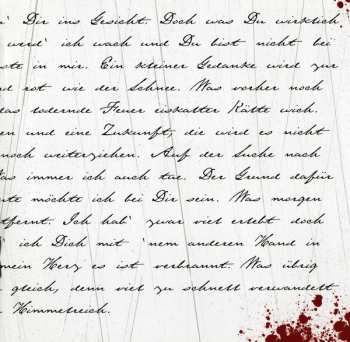 ' Dir ins Gesicht. Doch was Du wirklich
werd' ich wach und Du bist nicht bei
ste in mir. Ein kleiner Gedanke wird zur
nd rot wie der Schnee. Was vorher noch
das lodernde Feuer eiskalter Kälte wich.
en und eine Zukunft, die wird es nicht
noch weiterziehen. Auf der Suche nach
Was immer ich auch tue. Der Grund dafür
ute möchte ich bei Dir sein. Was morgen
tfernt. Ich hab' zwar viel erlebt doch
ich Dich mit 'nem anderen Hand in
mein Herz es ist verbrannt. Was übrig
gleich, denn viel zu schnell verwandelt
Himmelreich.